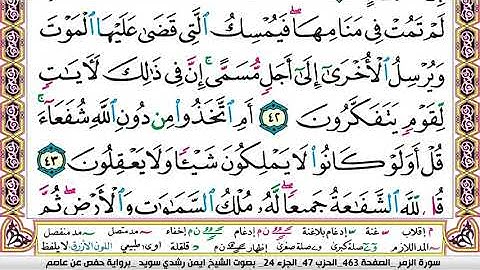 لَمْ تَمُتْ فِى مَنَامِهَا ۖ فَيُمْسِكُ ٱلَّتِى قَضَىٰ عَلَيْهَا ٱلْمَوْتَ
وَيُرْسِلُ ٱلْأُخْرَىٰٓ إِلَىٰٓ أَجَلٍ مُّسَمًّى ۚ إِنَّ فِى ذَٰلِكَ لَـَٔايَـٰتٍ
لِّقَوْمٍ يَتَفَكَّرُونَ ٤٢ أَمِ ٱتَّخَذُوا۟ مِن دُونِ ٱللَّهِ شُفَعَآءَ ۚ
قُلْ أَوَلَوْ كَانُوا۟ لَا يَمْلِكُونَ شَيْـًٔا وَلَا يَعْقِلُونَ ٤٣
قُل لِّلَّهِ ٱلشَّفَـٰعَةُ جَمِيعًا ۖ لَّهُۥ مُلْكُ ٱلسَّمَـٰوَٰتِ وَٱلْأَرْضِ ۖ ثُمَّ
م إقلاب غنة م إدغام بلاغنة ن م إدغام ن م إخفاء مد متصل مد منفصل
المد اللازم صلة كبرى وصلة صغرى إظهار قلقلة أو ى طبيعي اللون الأزرق لا يلفظ
سورة الزمر_الصفحة 463_الحزب 47_الجزء 24_ بصوت الشيخ ايمن رشدي سويد _برواية حفص عن عاصم